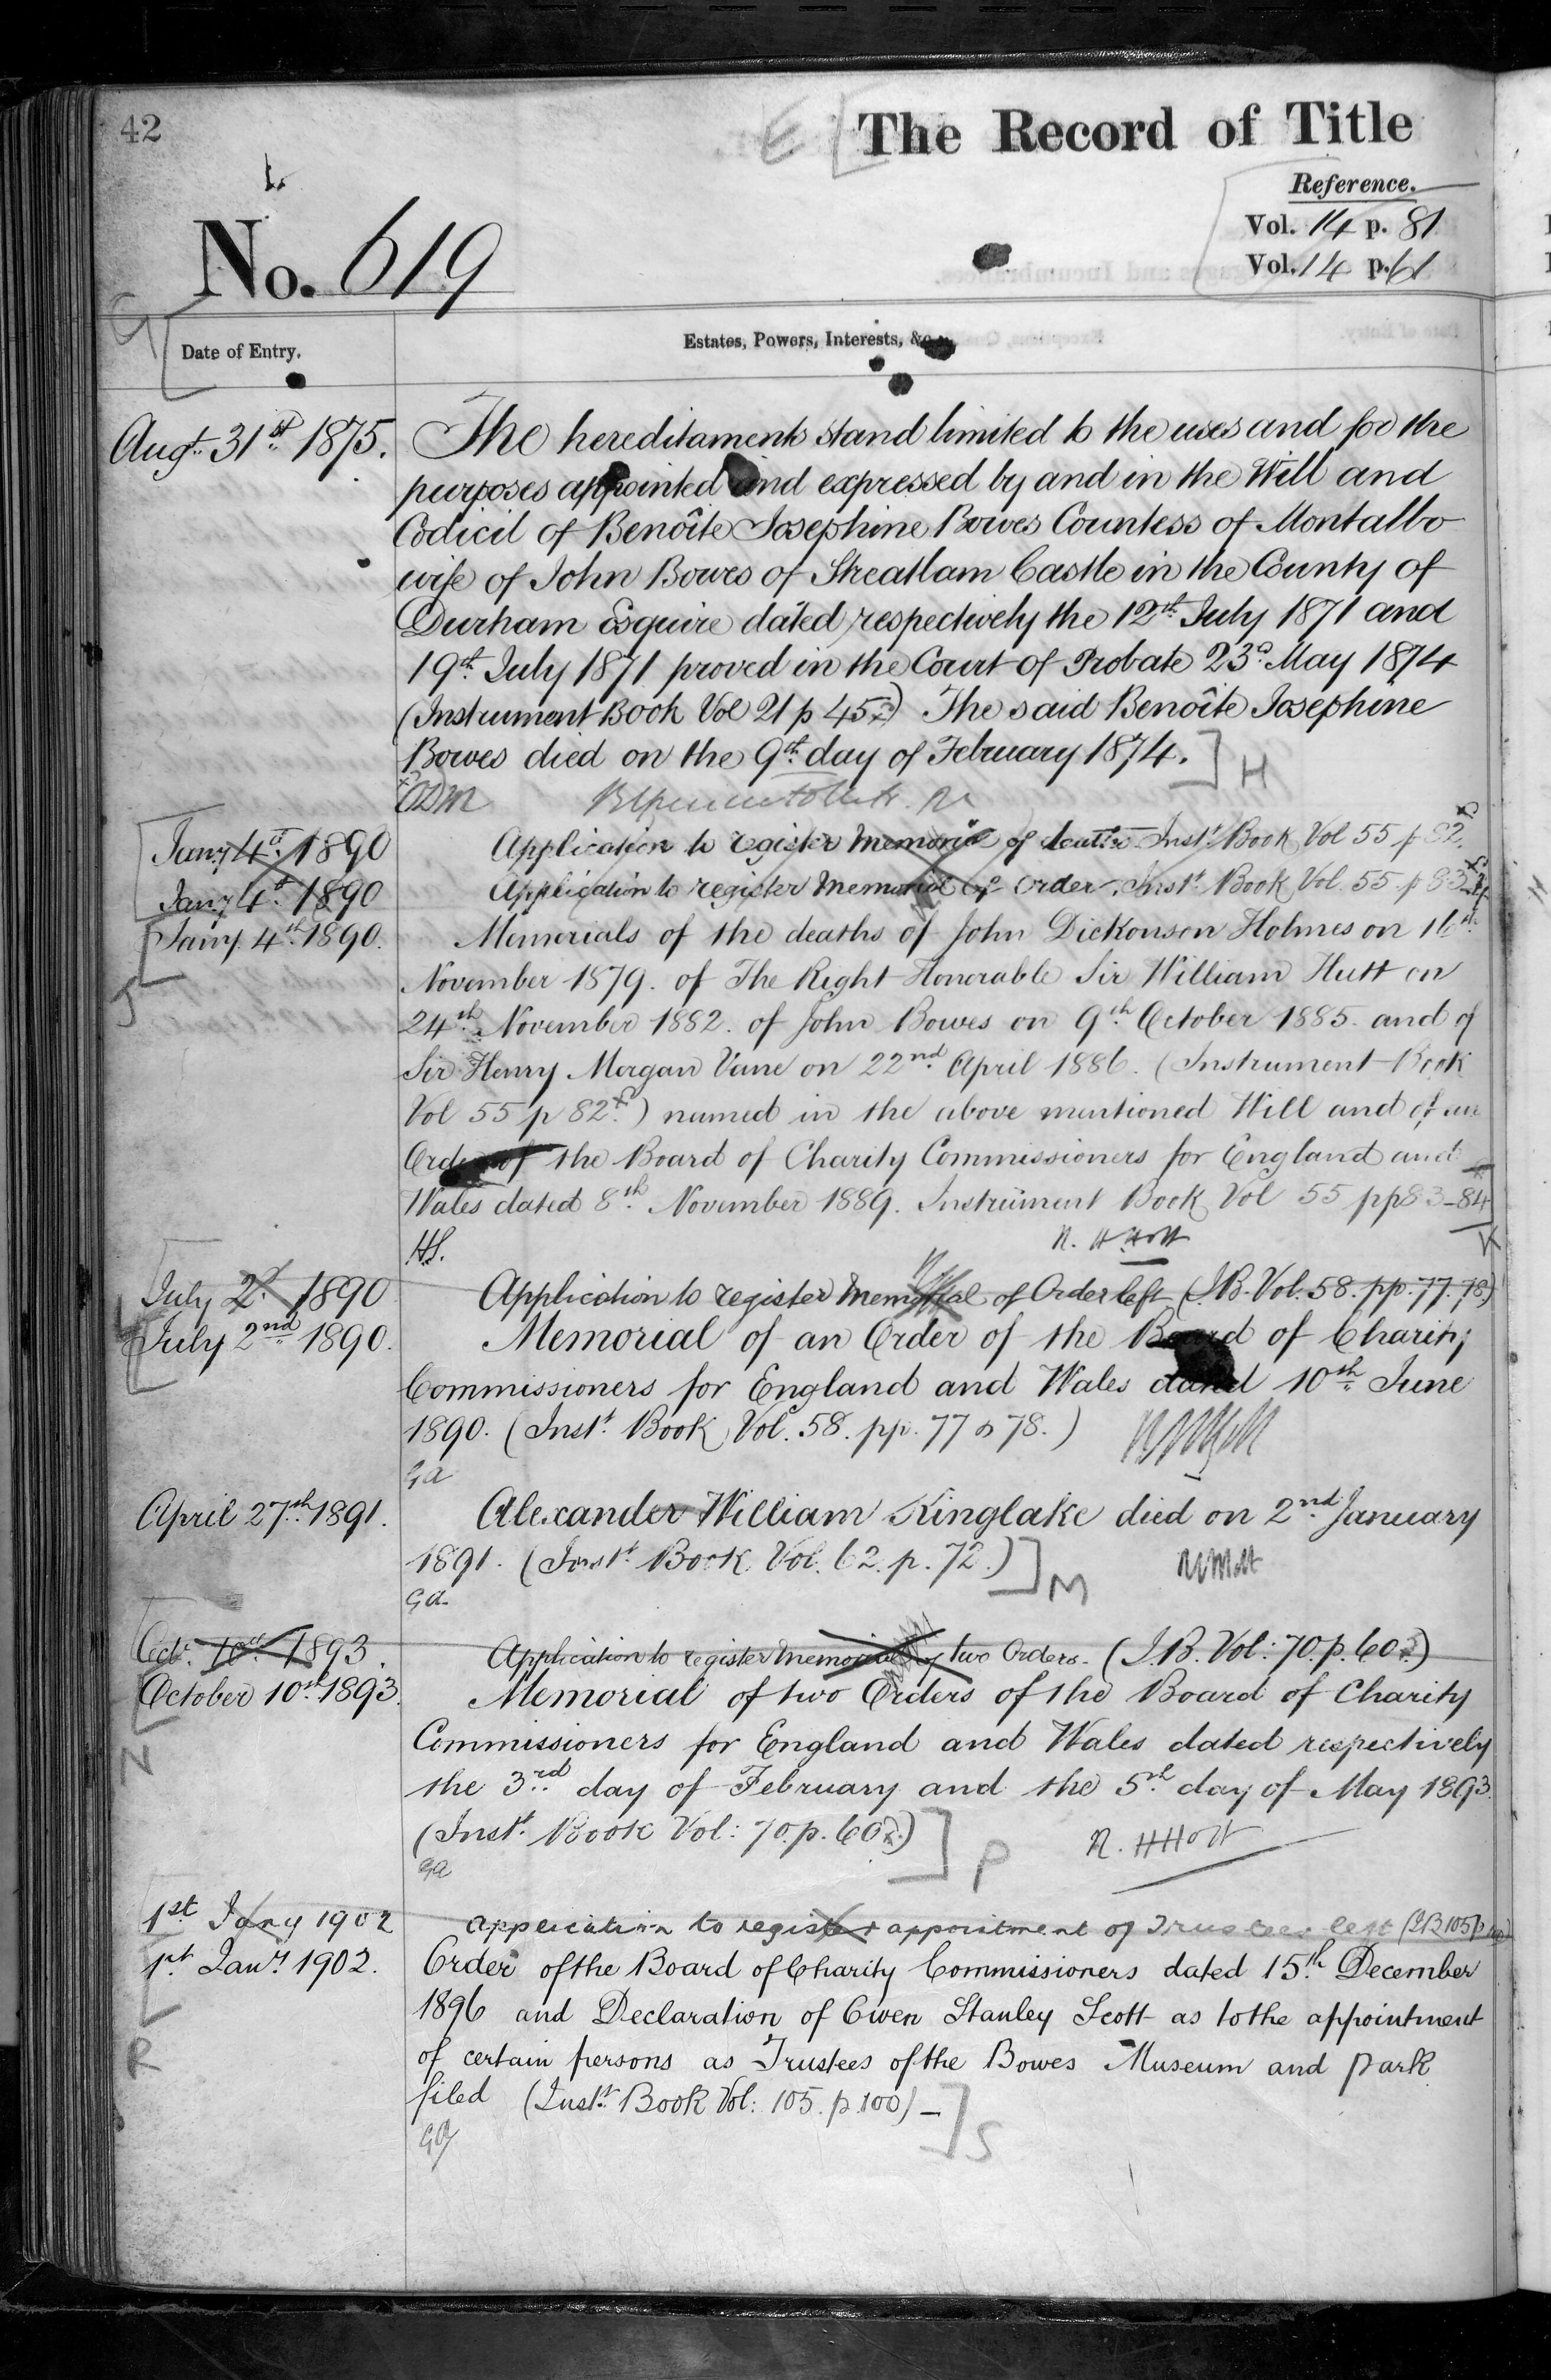 42
E
The Record of Title
Reference.
Vol. 14 p. 81
Vol. 14 p. 61
No. 619
G
Date of Entry.
Estates, Powers, Interests, &c.
Augt. 31st 1875. The hereditaments stand limited to the uses and for the
purposes appointed and expressed by and in the Will and
Codicil of Benoîte Josephine Bowes Countess of Montalbo
wife of John Bowes of Streatlam Castle in the County of
Durham Esquire dated respectively the 12th July 1871 and
19th July 1871 proved in the Court of Probate 23d May 1874
(Instrument Book Vol 21 p 45) The said Benoîte Josephine
Bowes died on the 9th day of February 1874. H
Jany 4th 1890 Application to register Memorial of deaths Inst. Book Vol 55 p 82
Jany 4th 1890 Application to register Memorial of Order. Inst. Book Vol. 55 p 83
Jany. 4th 1890. Memorials of the deaths of John Dickonson Holmes on 16th
November 1879. of The Right Honorable Sir William Hutt on
24th November 1882. of John Bowes on 9th October 1885. and of
Sir Henry Morgan Vane on 22nd April 1886. (Instrument Book
Vol 55 p 82) named in the above mentioned Will and of an
Order of the Board of Charity Commissioners for England and
Wales dated 8th November 1889. Instrument Book Vol 55 pp 83-84
J
HS. R. H Holt K
July 2d 1890 Application to register Memorial of Order left (I.B. Vol. 58. pp. 77. 78)
July 2nd 1890. Memorial of an Order of the Board of Charity
Commissioners for England and Wales dated 10th June
1890. (Inst. Book Vol. 58. pp. 77 & 78.)
L
Ga
April 27th 1891. Alexander William Kinglake died on 2nd January
1891. (Inst. Book Vol. 62. p. 72.) M
Ga.
Oct. 10th 1893. Application to register Memorial of two Orders. (I.B. Vol: 70. p. 60)
October 10th 1893. Memorial of two Orders of the Board of Charity
Commissioners for England and Wales dated respectively
the 3rd day of February and the 5th day of May 1893.
(Inst. Book Vol: 70. p. 60) P R. HHolt
N
Ga
1st Jany 1902 Application to register appointment of Trustees left (IB 105 p 100)
1st Jany 1902. Order of the Board of Charity Commissioners dated 15th December
1896 and Declaration of Owen Stanley Scott as to the appointment
of certain persons as Trustees of the Bowes Museum and Park
filed (Inst. Book Vol: 105. p. 100) S
R